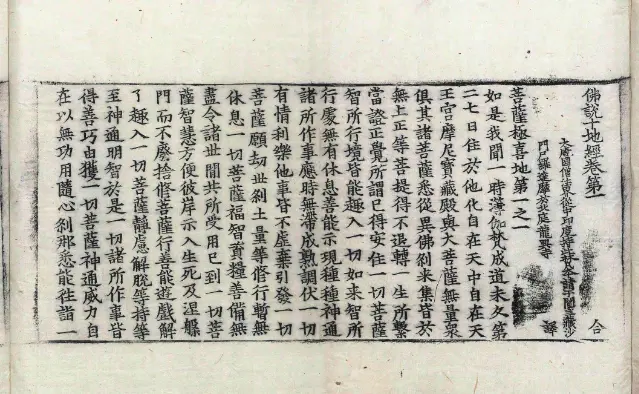 佛說十地經卷第一 合
大唐國僧法界從中印度持此梵本請于闐三藏沙
門尸羅達摩於北庭龍興寺 譯
菩薩極喜地第一之一
如是我聞一時薄伽梵成道未久第
二七日住於他化自在天中自在天
王宮摩尼寶藏殿與大菩薩無量眾
俱其諸菩薩悉從異佛剎來集皆於
無上正等菩提得不退轉一生所繫
當證正覺所謂已得安住一切菩薩
智所行境皆能趣入一切如來智所
行處無有休息善能示現種種神通
諸所作事應時無滯成熟調伏一切
有情利樂他事皆不虛棄引發一切
菩薩願劫世剎土量等修行暫無
休息一切菩薩福智資糧善備無
盡令諸世間共所受用已到一切菩
薩智慧方便彼岸示入生死及涅槃
門而不廢捨修菩薩行善能遊戲解
了趣入一切菩薩靜慮解脫等持等
至神通明智於是一切諸所作事皆
得善巧由獲一切菩薩神通威力自
在以無功用隨心剎那悉能往詣一